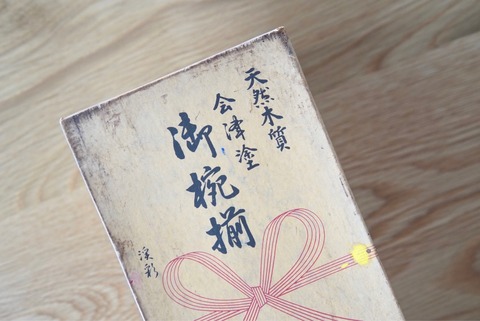 天然木質
会津塗
御椀揃
渓彩